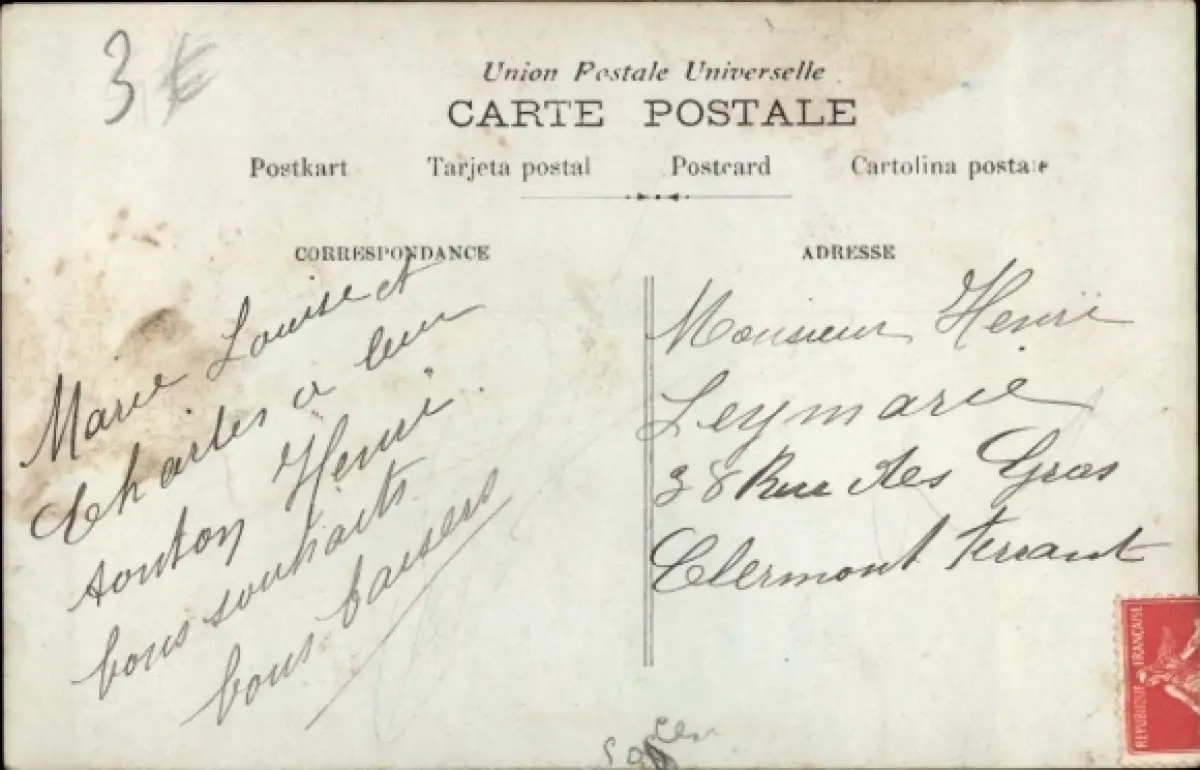 3 €
Union Postale Universelle
CARTE POSTALE
Postkart Tarjeta postal Postcard Cartolina postale
CORRESPONDANCE
ADRESSE
Marie Louise et
Charles a leur
tonton Henri.
bons souhaits
bons baisers
Monsieur Henri
Leymarie
38 Rue des Gras
Clermont Ferrant
REPUBLIQUE FRANÇAISE